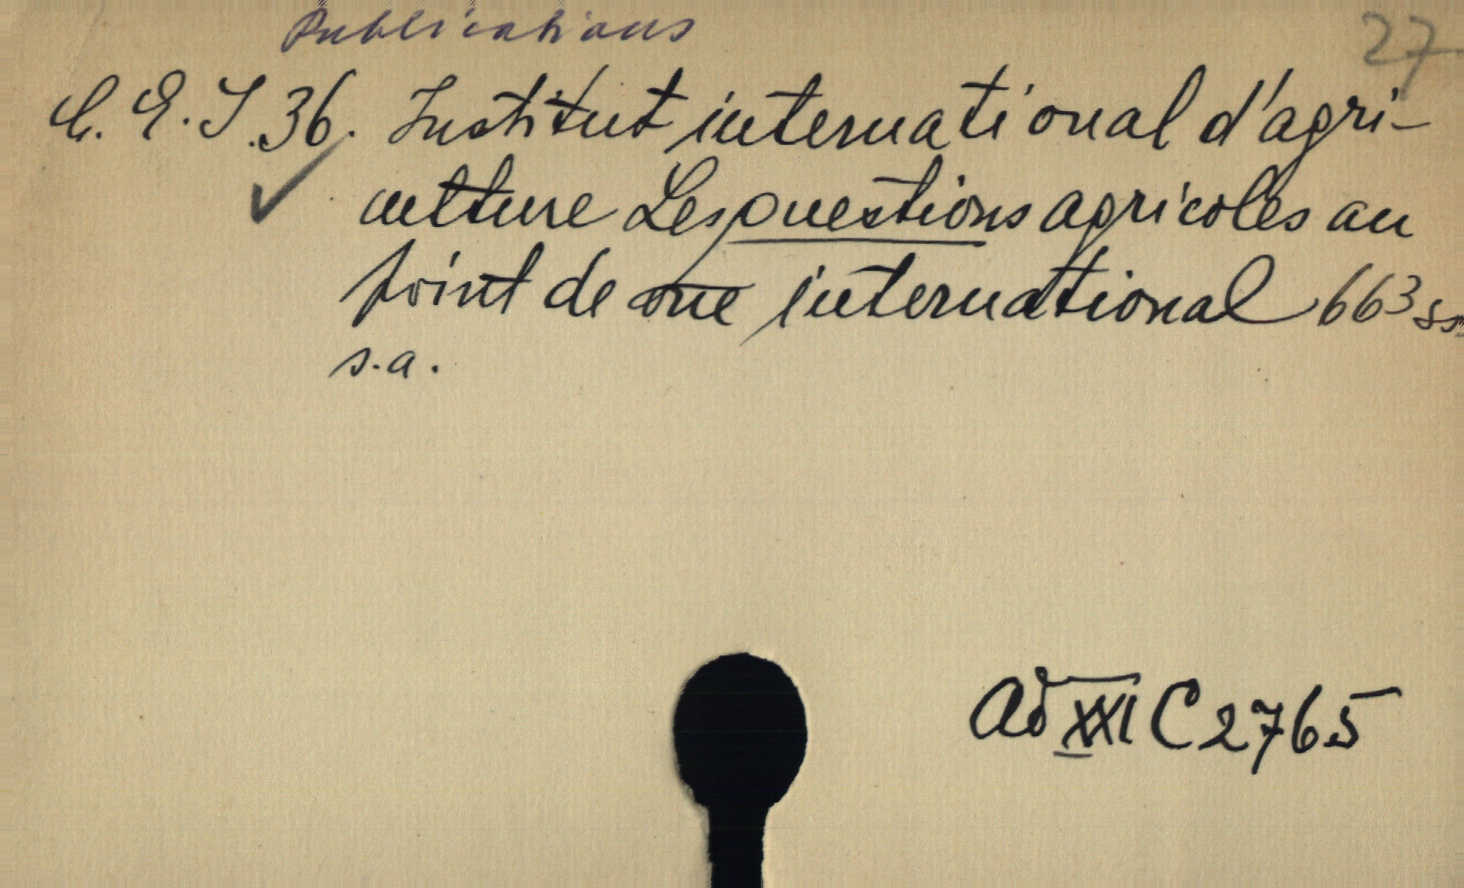 Publications
27
C. E. I. 36. Institut international d'agri-
culture Les questions agricoles au
point de vue international 663 ss.
s.a.
ad XXI C 2765